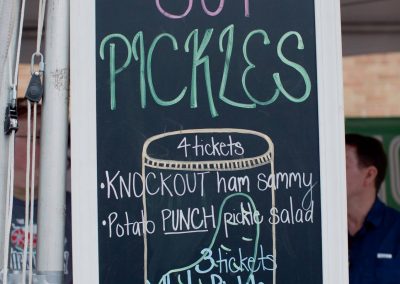 PICKLES
4 tickets
•KNOCKOUT ham sammy
•Potato PUNCH pickle salad
3 tickets